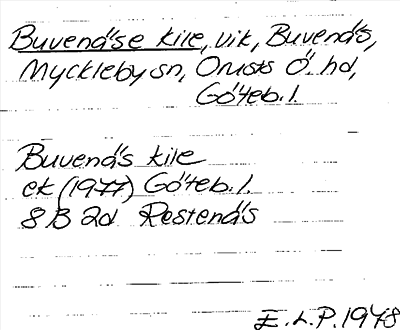 Buvenäse kile, vik, Buvenäs,
Mycklebysn, Orusts Ö. hd,
Göteb. l.
Buvenäs kile
ek (1977) Göteb. l.
8B 2d Restenäs
E.L.P. 1978